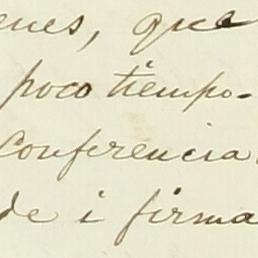 enes, que
poco tiempo-
Conferencia
de i firma